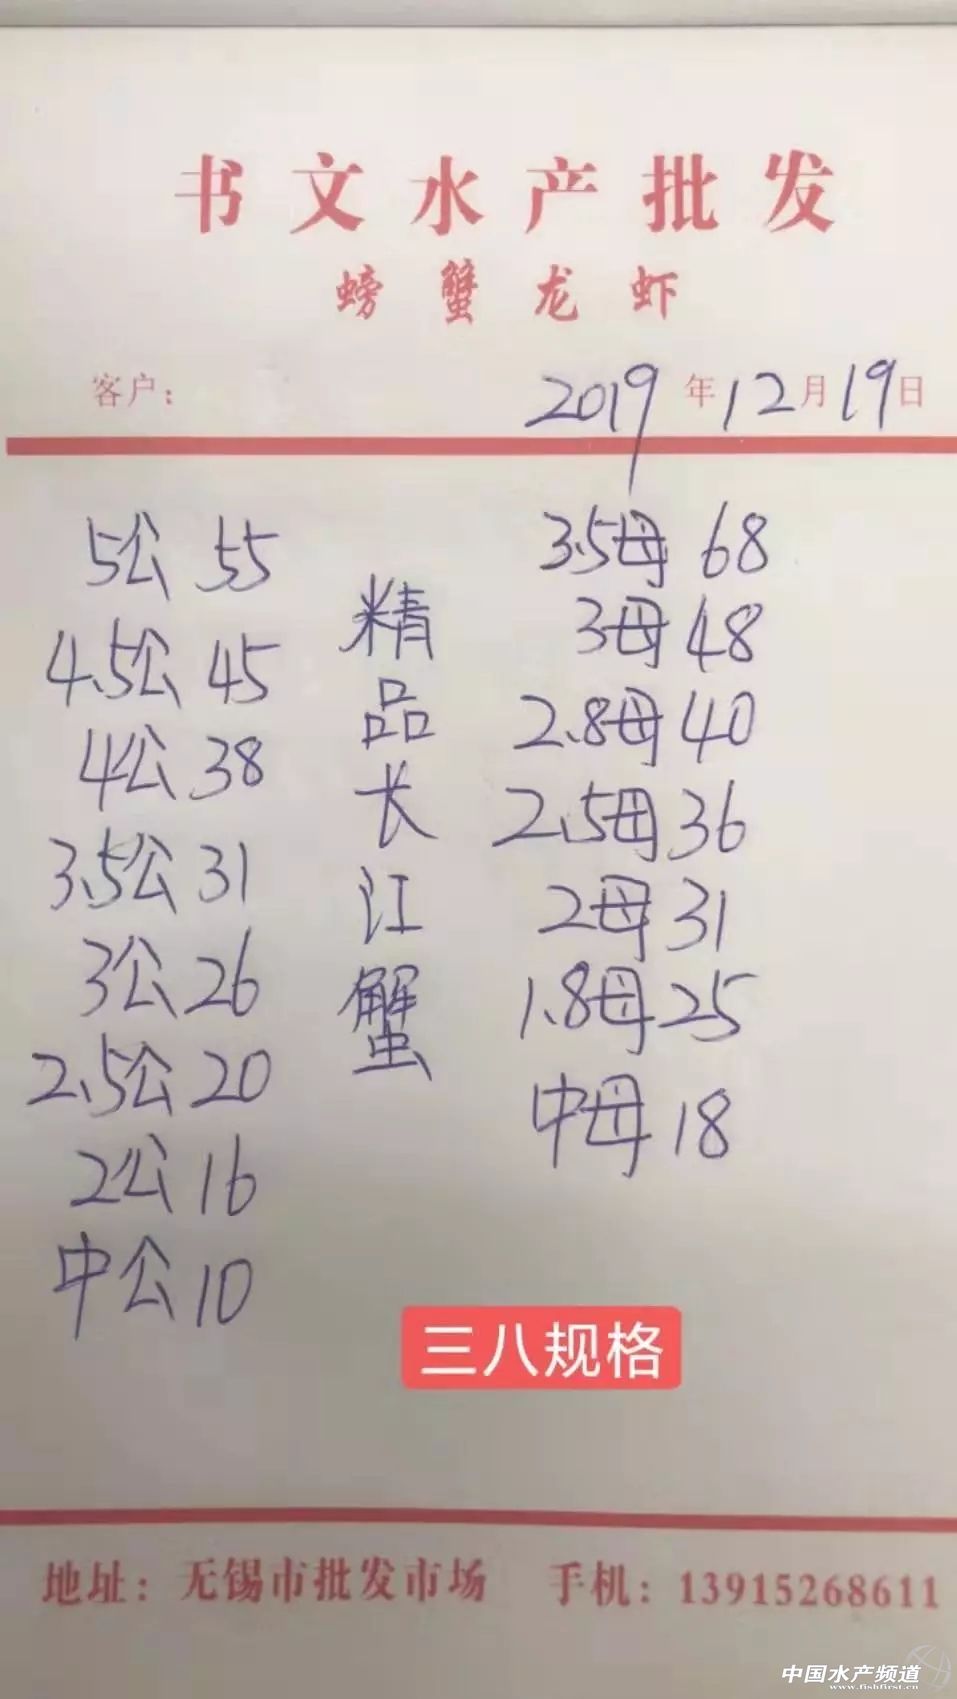 书文水产批发
螃蟹龙虾
客户：
2019年12月19日
5公 55
4.5公 45
4公 38
3.5公 31
3公 26
2.5公 20
2公 16
中公 10
精品长江蟹
3.5母 68
3母 48
2.8母 40
2.5母 36
2母 31
1.8母 25
中母 18
三八规格
地址：无锡市批发市场 手机：13915268611
中国水产频道
www.fishfirst.cn